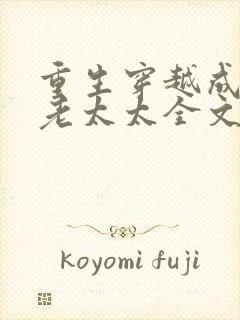 重生穿越成
老太太全文
koyomi fuji